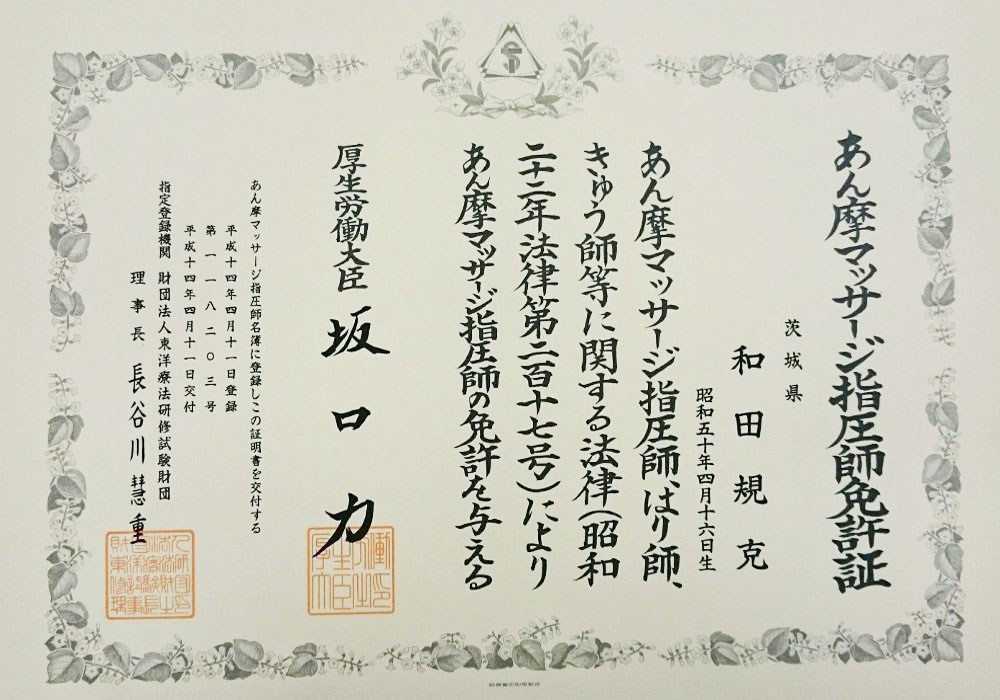 あん摩マッサージ指圧師免許証
茨城県
和田規克
昭和五十年四月十六日生
あん摩マッサージ指圧師、はり師、
きゅう師等に関する法律(昭和
二十二年法律第二百十七号)により
あん摩マッサージ指圧師の免許を与える
厚生労働大臣 坂口力
あん摩マッサージ指圧師名簿に登録しこの証明書を交付する
平成十四年四月十一日登録
第一一八二〇三号
平成十四年四月十一日交付
指定登録機関 財団法人東洋療法研修試験財団
理事長 長谷川慧重